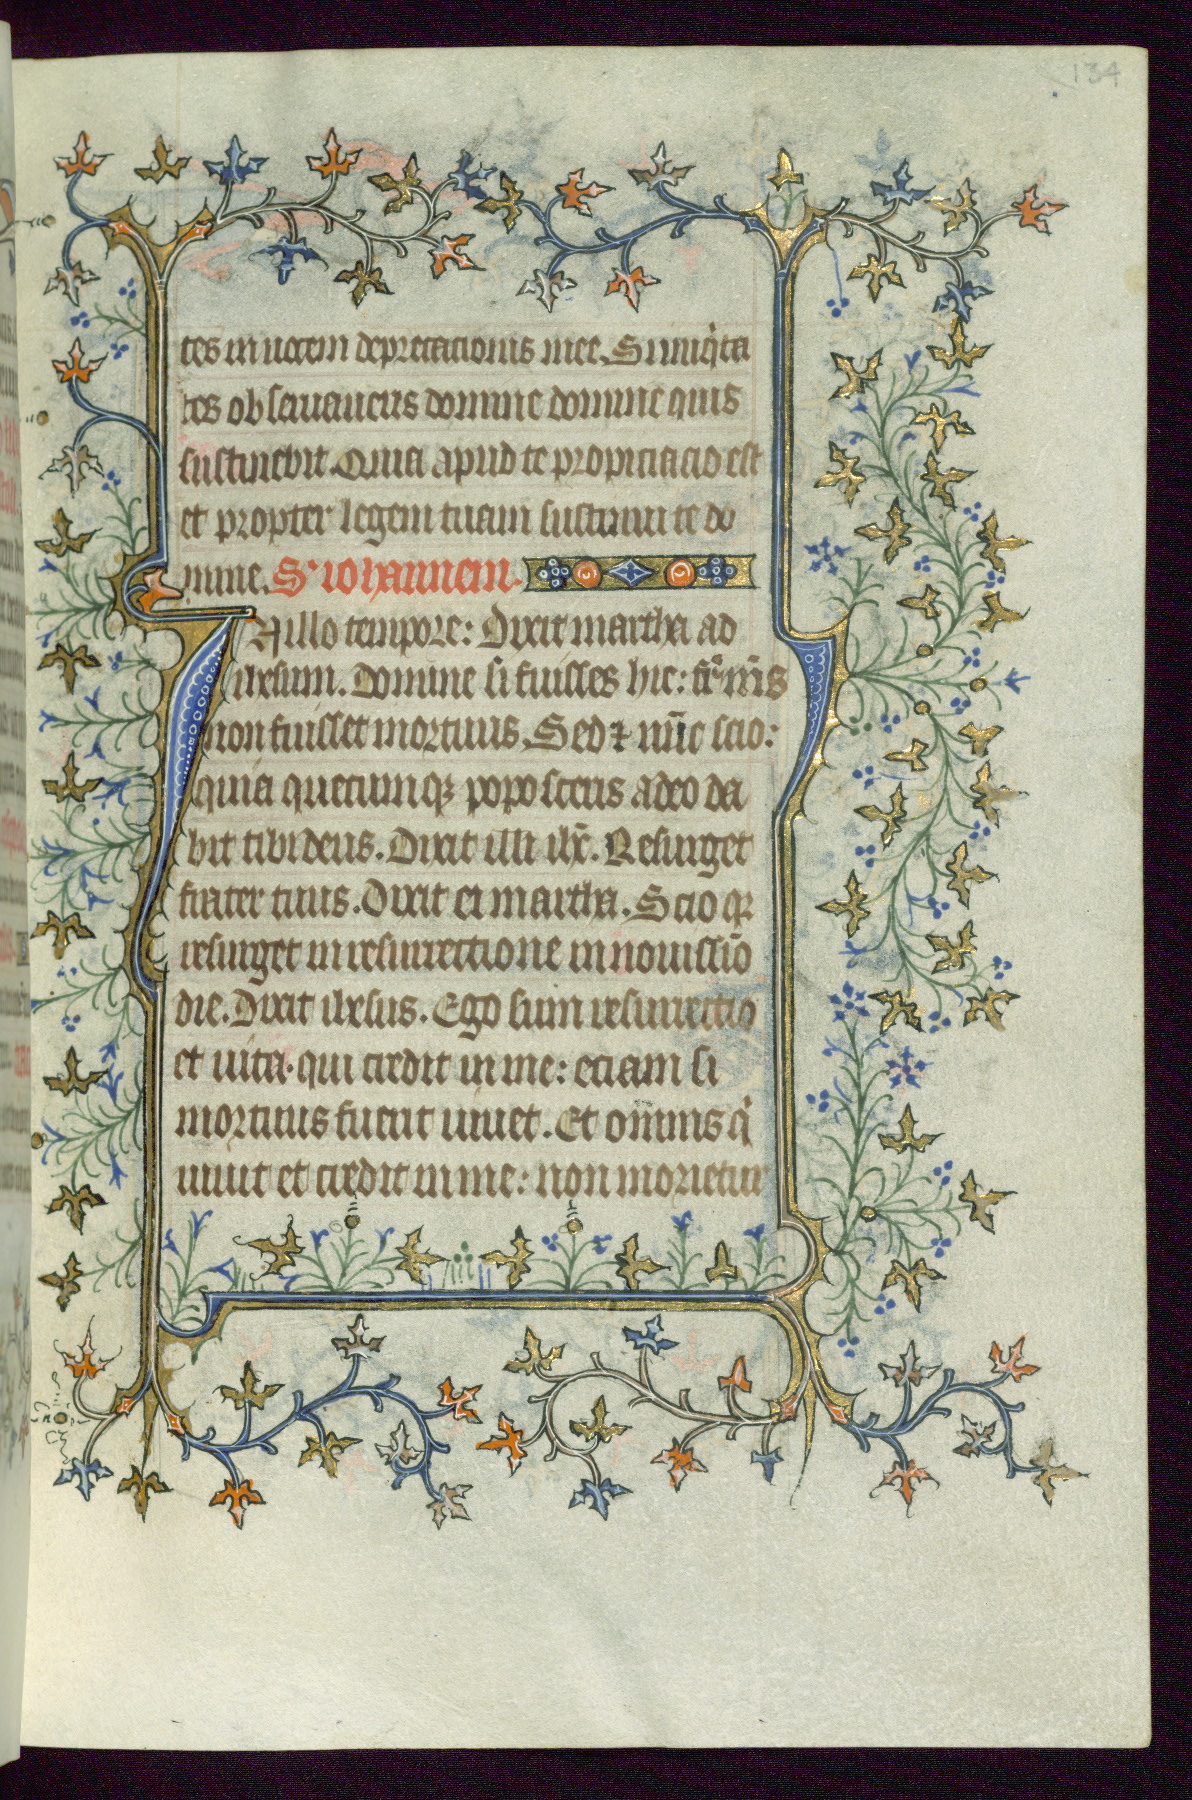 134
tes in uocem deprecationis mee. Si iniqͥta
tes obseruaueris domine domine quis
sustinebit. Quia apud te propiciacio est
et propter legem tuam sustinui te do
mine. Sᵐ iohannem.
In illo tempore: Dixit martha ad
ihesum. Domine si fuisses hic: fr̄ m̄s
non fuisset mortuus. Sed ⁊ nūc scio:
quia quecumqꝫ poposceris a deo da
bit tibi deus. Dixit illi ihc̄. Resurget
frater tuus. Dixit ei martha. Scio qꝫ
resurget in resurrectione in nouissīo
die. Dixit ihesus. Ego sum resurrectio
et uita. qui credit in me: eciam si
mortuus fuerit uiuet. Et omnis qͥ
uiuit et credit in me: non morietur